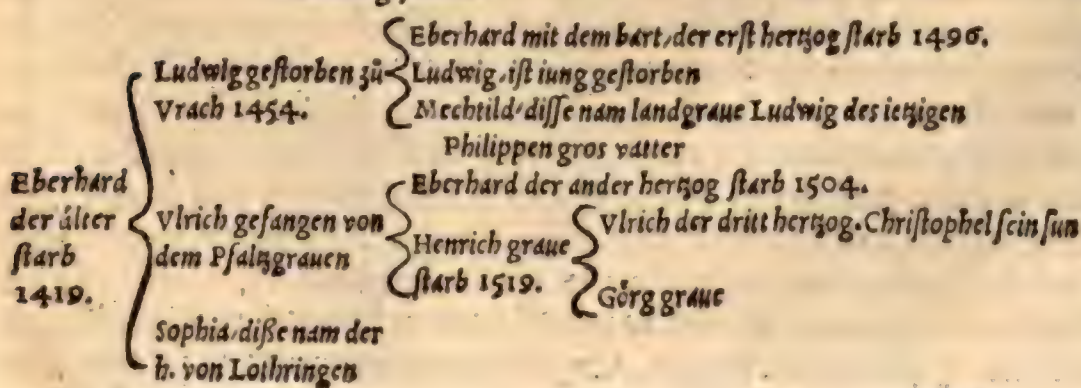 Eberhard
der älter
ſtarb
1419.
Ludwig geſtorben zů
Vrach 1454.
Eberhard mit dem bart, der erſt hertzog ſtarb 1496.
Ludwig, iſt iung geſtorben
Mechtild, diſſe nam landgraue Ludwig des ietzigen
Philippen gros vatter
Vlrich gefangen von
dem Pfaltzgrauen
Eberhard der ander hertzog ſtarb 1504.
Henrich graue
ſtarb 1519.
Vlrich der dritt hertzog. Chriſtophel ſein ſun
Görg graue
Sophia, diße nam der
h. von Lothringen